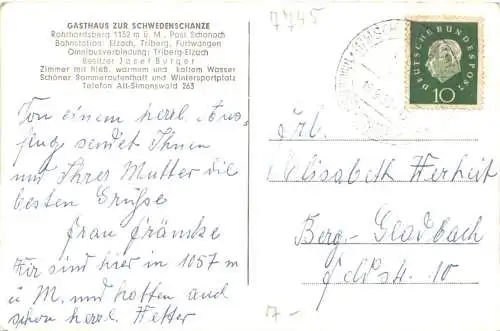 GASTHAUS ZUR SCHWEDENSCHANZE
Rohrhardsberg 1152 m ü. M. Post Schonach
Bahnstation: Elzach, Triberg, Furtwangen
Omnibusverbindung: Triberg-Elzach
Besitzer Josef Burger
Zimmer mit fließ. warmem und kaltem Wasser
Schöner Sommeraufenthalt und Wintersportplatz
Telefon Alt-Simonswald 263
Von einem herrl. Aus-
flug sendet Ihnen
und Ihrer Mutter die
besten Grüße
Frau Främke
Wir sind hier in 1057 m
ü M. und hatten auch
schon herrl. Wetter
7745
DEUTSCHE BUNDESPOST
10
Frl.
Elisabeth Herheit
Berg.-Gladbach
str. 10
7-